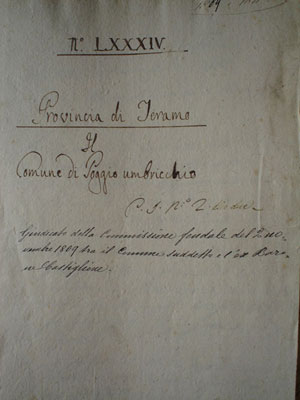 Nº LXXXIV.
Provincia di Teramo
Il
Comune di Poggio umbricchio
C. S. Nº 2
Giudicato della Commissione feudale del 2 no-
vembre 1809 tra il Comune suddetto e l'ex Baro-
ne